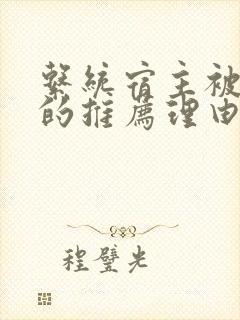 繫統宿主被
的推薦理由
程璧光